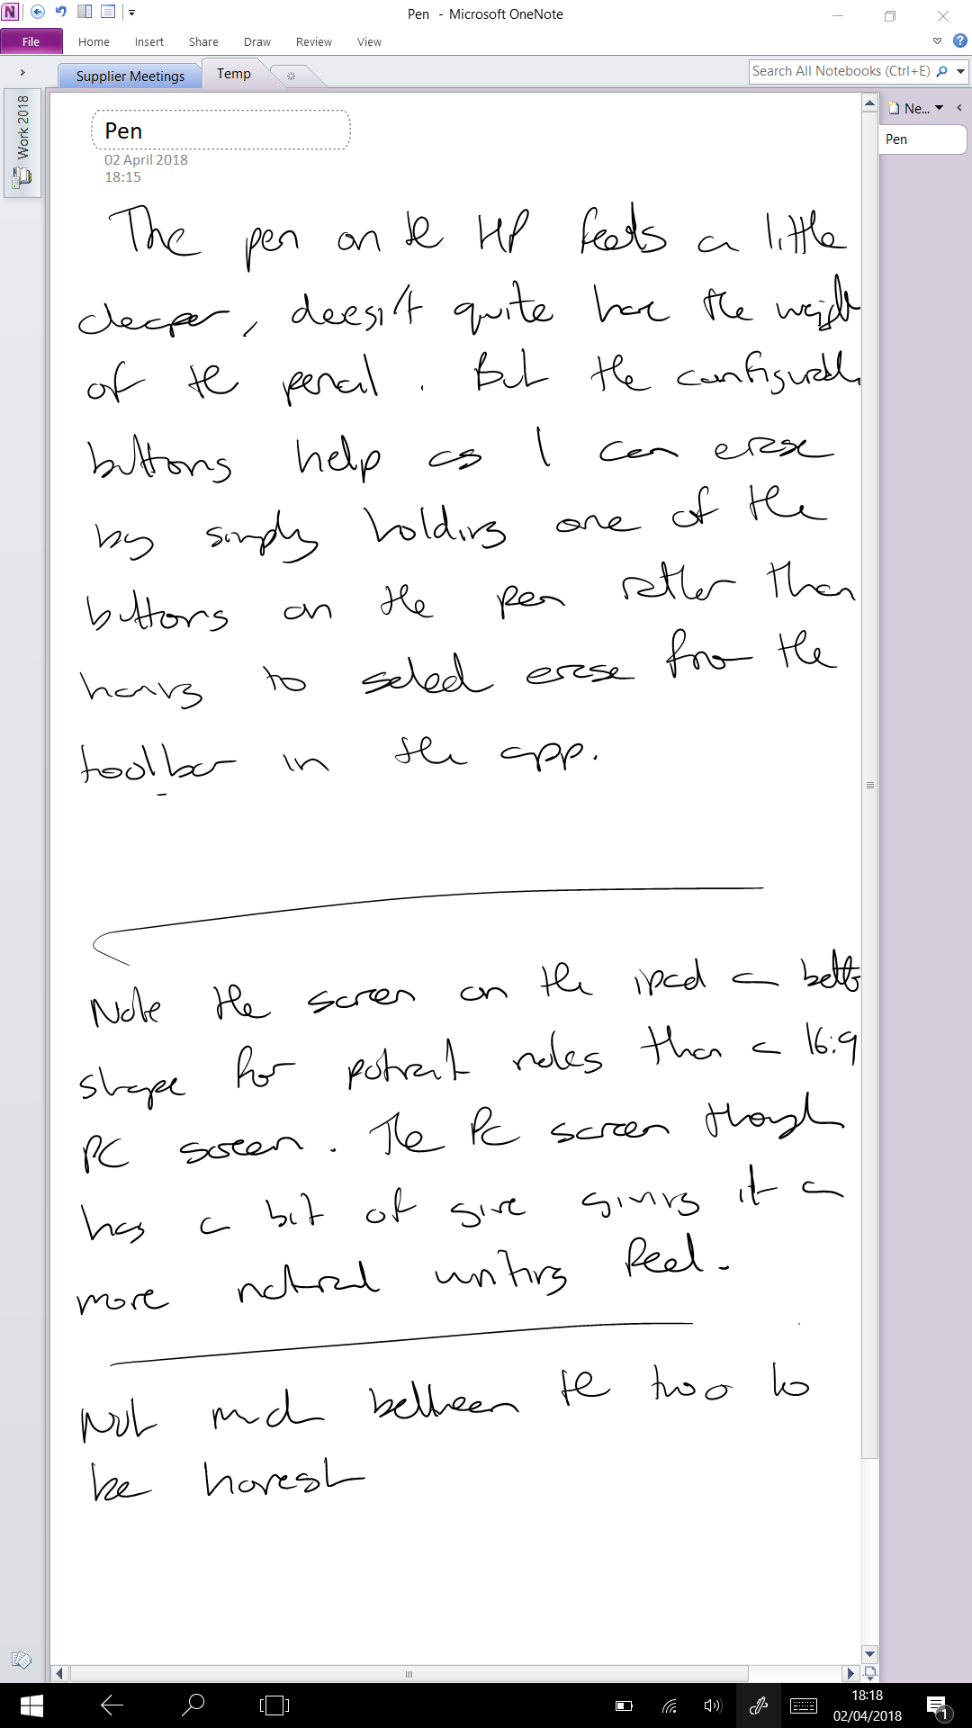 Pen - Microsoft OneNote
File Home Insert Share Draw Review View
Supplier Meetings Temp Search All Notebooks (Ctrl+E)
Work 2018
Ne...
Pen
Pen
02 April 2018
18:15
The pen on the HP feels a little
cheaper, doesn't quite have the weight
of the pencil. But the configurable
buttons help as I can erase
by simply holding one of the
buttons on the pen rather than
having to select erase from the
toolbar in the app.
Note the screen on the ipad a better
shape for potrait notes than a 16:9
PC screen. The PC screen though
has a bit of give giving it a
more natural writing feel.
Not much between the two to
be honest
18:18
02/04/2018
1